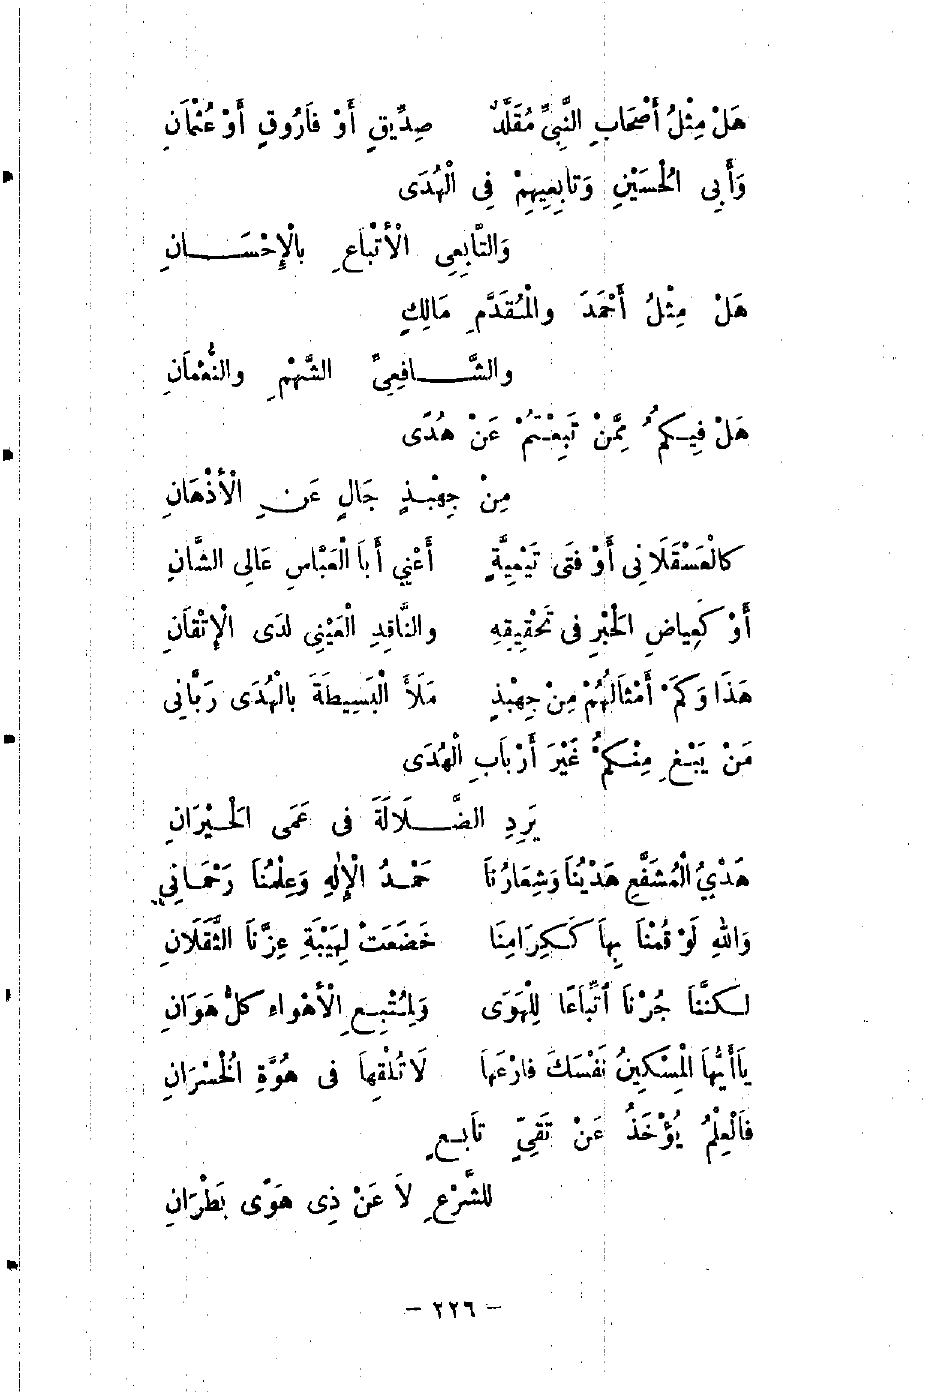 هَلْ مِثْلُ أَصْحَابِ النَّبِيِّ مُقَلَّدٌ    صِدِّيقٍ أَوْ فَارُوقٍ أَوْ عُثْمَانِ
وَأَبِى الْحُسَيْنِ وَتَابِعِيهِمْ فِى الْهُدَى
وَالتَّابِعِى الْأَتْبَاعِ بالْإِحْسَانِ
هَلْ مِثْلُ أَحْمَدَ والْمُقَدَّمِ مَالِكٍ
والشَّافِعِىِّ الشَّهْمِ والنُّعْمَانِ
هَلْ فِيكُمُ مِمَّنْ تَبِعْتُمْ عَنْ هُدًى
مِنْ جِهْبِذٍ جَالٍ عَنِ الْأَذْهَانِ
كالْعَسْقَلَانِى أَوْ فَتَى تَيْمِيَّةٍ    أَعْنِي أَبَا الْعَبَّاسِ عَالِى الشَّانِ
أَوْ كَعِيَاضِ الحَبْرِ فى تَحْقِيقِهِ    والنَّاقِدِ الْعَيْنِى لَدَى الْإِتْقَانِ
هَذَا وَكَمْ أَمْثَالُهُمْ مِنْ جِهْبِذٍ    مَلَأَ الْبَسِيطَةَ بالْهُدَى رَبَّانِى
مَنْ يَبْغِ مِنْكُمْ غَيْرَ أَرْبَابِ الْهُدَى
يَرِدِ الضَّلَالَةَ فى عَمَى الحَيْرَانِ
هَدْيُ الْمُشَفَّعِ هَدْيُنَا وَشِعَارُنَا    حَمْدُ الْإِلٰهِ وَعِلْمُنَا رَحْمَانِي
وَاللهِ لَوْ قُمْنَا بِهَا كَكِرَامِنَا    خَضَعَتْ لِهَيْبَةِ عِزِّنَا الثَّقَلَانِ
لكنَّنَا جُرْنَا اتِّبَاعًا لِلْهَوَى    وَلِمُتْبِعِ الْأَهْوَاءِ كلُّ هَوَانِ
يَاأَيُّهَا الْمِسْكِينُ نَفْسَكَ فارْعَهَا    لَا تُلْقِهَا فى هُوَّةِ الخُسْرَانِ
فَالْعِلْمُ يُؤْخَذُ عَنْ تَقِىٍّ تابعٍ
للشَّرْعِ لَا عَنْ ذِى هَوًى بَطْرَانِ
– ٢٢٦ –